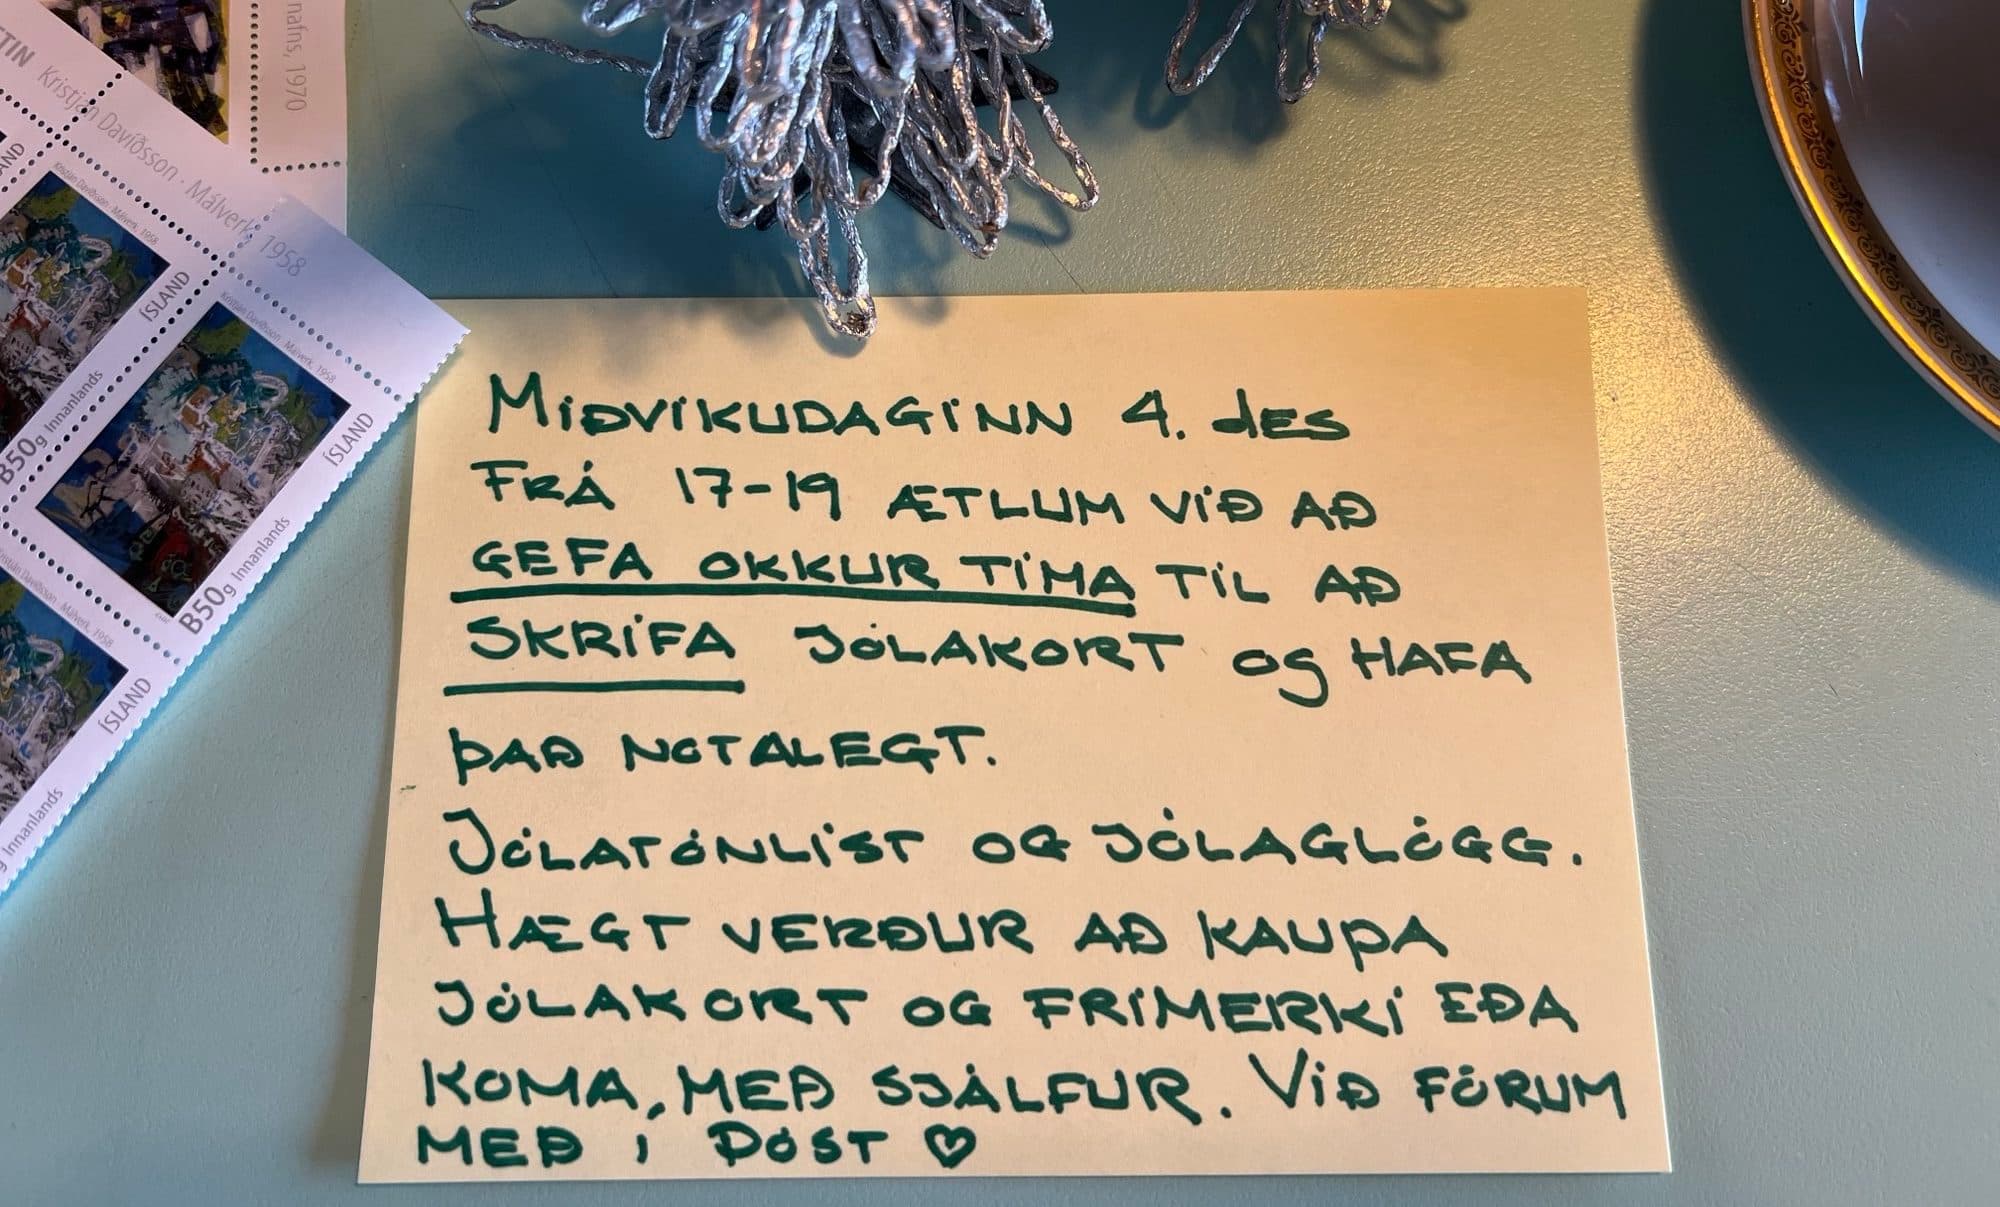 nafns, 1970
TIN
Kristján Davíðsson · Málverk 1958
AND
Kristján Davíðsson · Málverk, 1958
ÍSLAND
B50g Innanlands
Kristján Davíðsson · Málverk, 1958
ÍSLAND
B50g Innanlands
Kristján Davíðsson · Málverk, 1958
ÍSLAND
g Innanlands
MIÐVIKUDAGINN 4. dES
FRÁ 17-19 ÆTLUM VIÐ AÐ
GEFA OKKUR TÍMA TIL AÐ
SKRIFA JÓLAKORT og HAFA
ÞAÐ NOTALEGT.
JÓLATÓNLIST OG JÓLAGLÖGG.
HÆGT VERÐUR AÐ KAUPA
JÓLAKORT OG FRÍMERKI EÐA
KOMA, MEÐ SJÁLFUR. VIÐ FÖRUM
MEÐ Í PÓST ♡